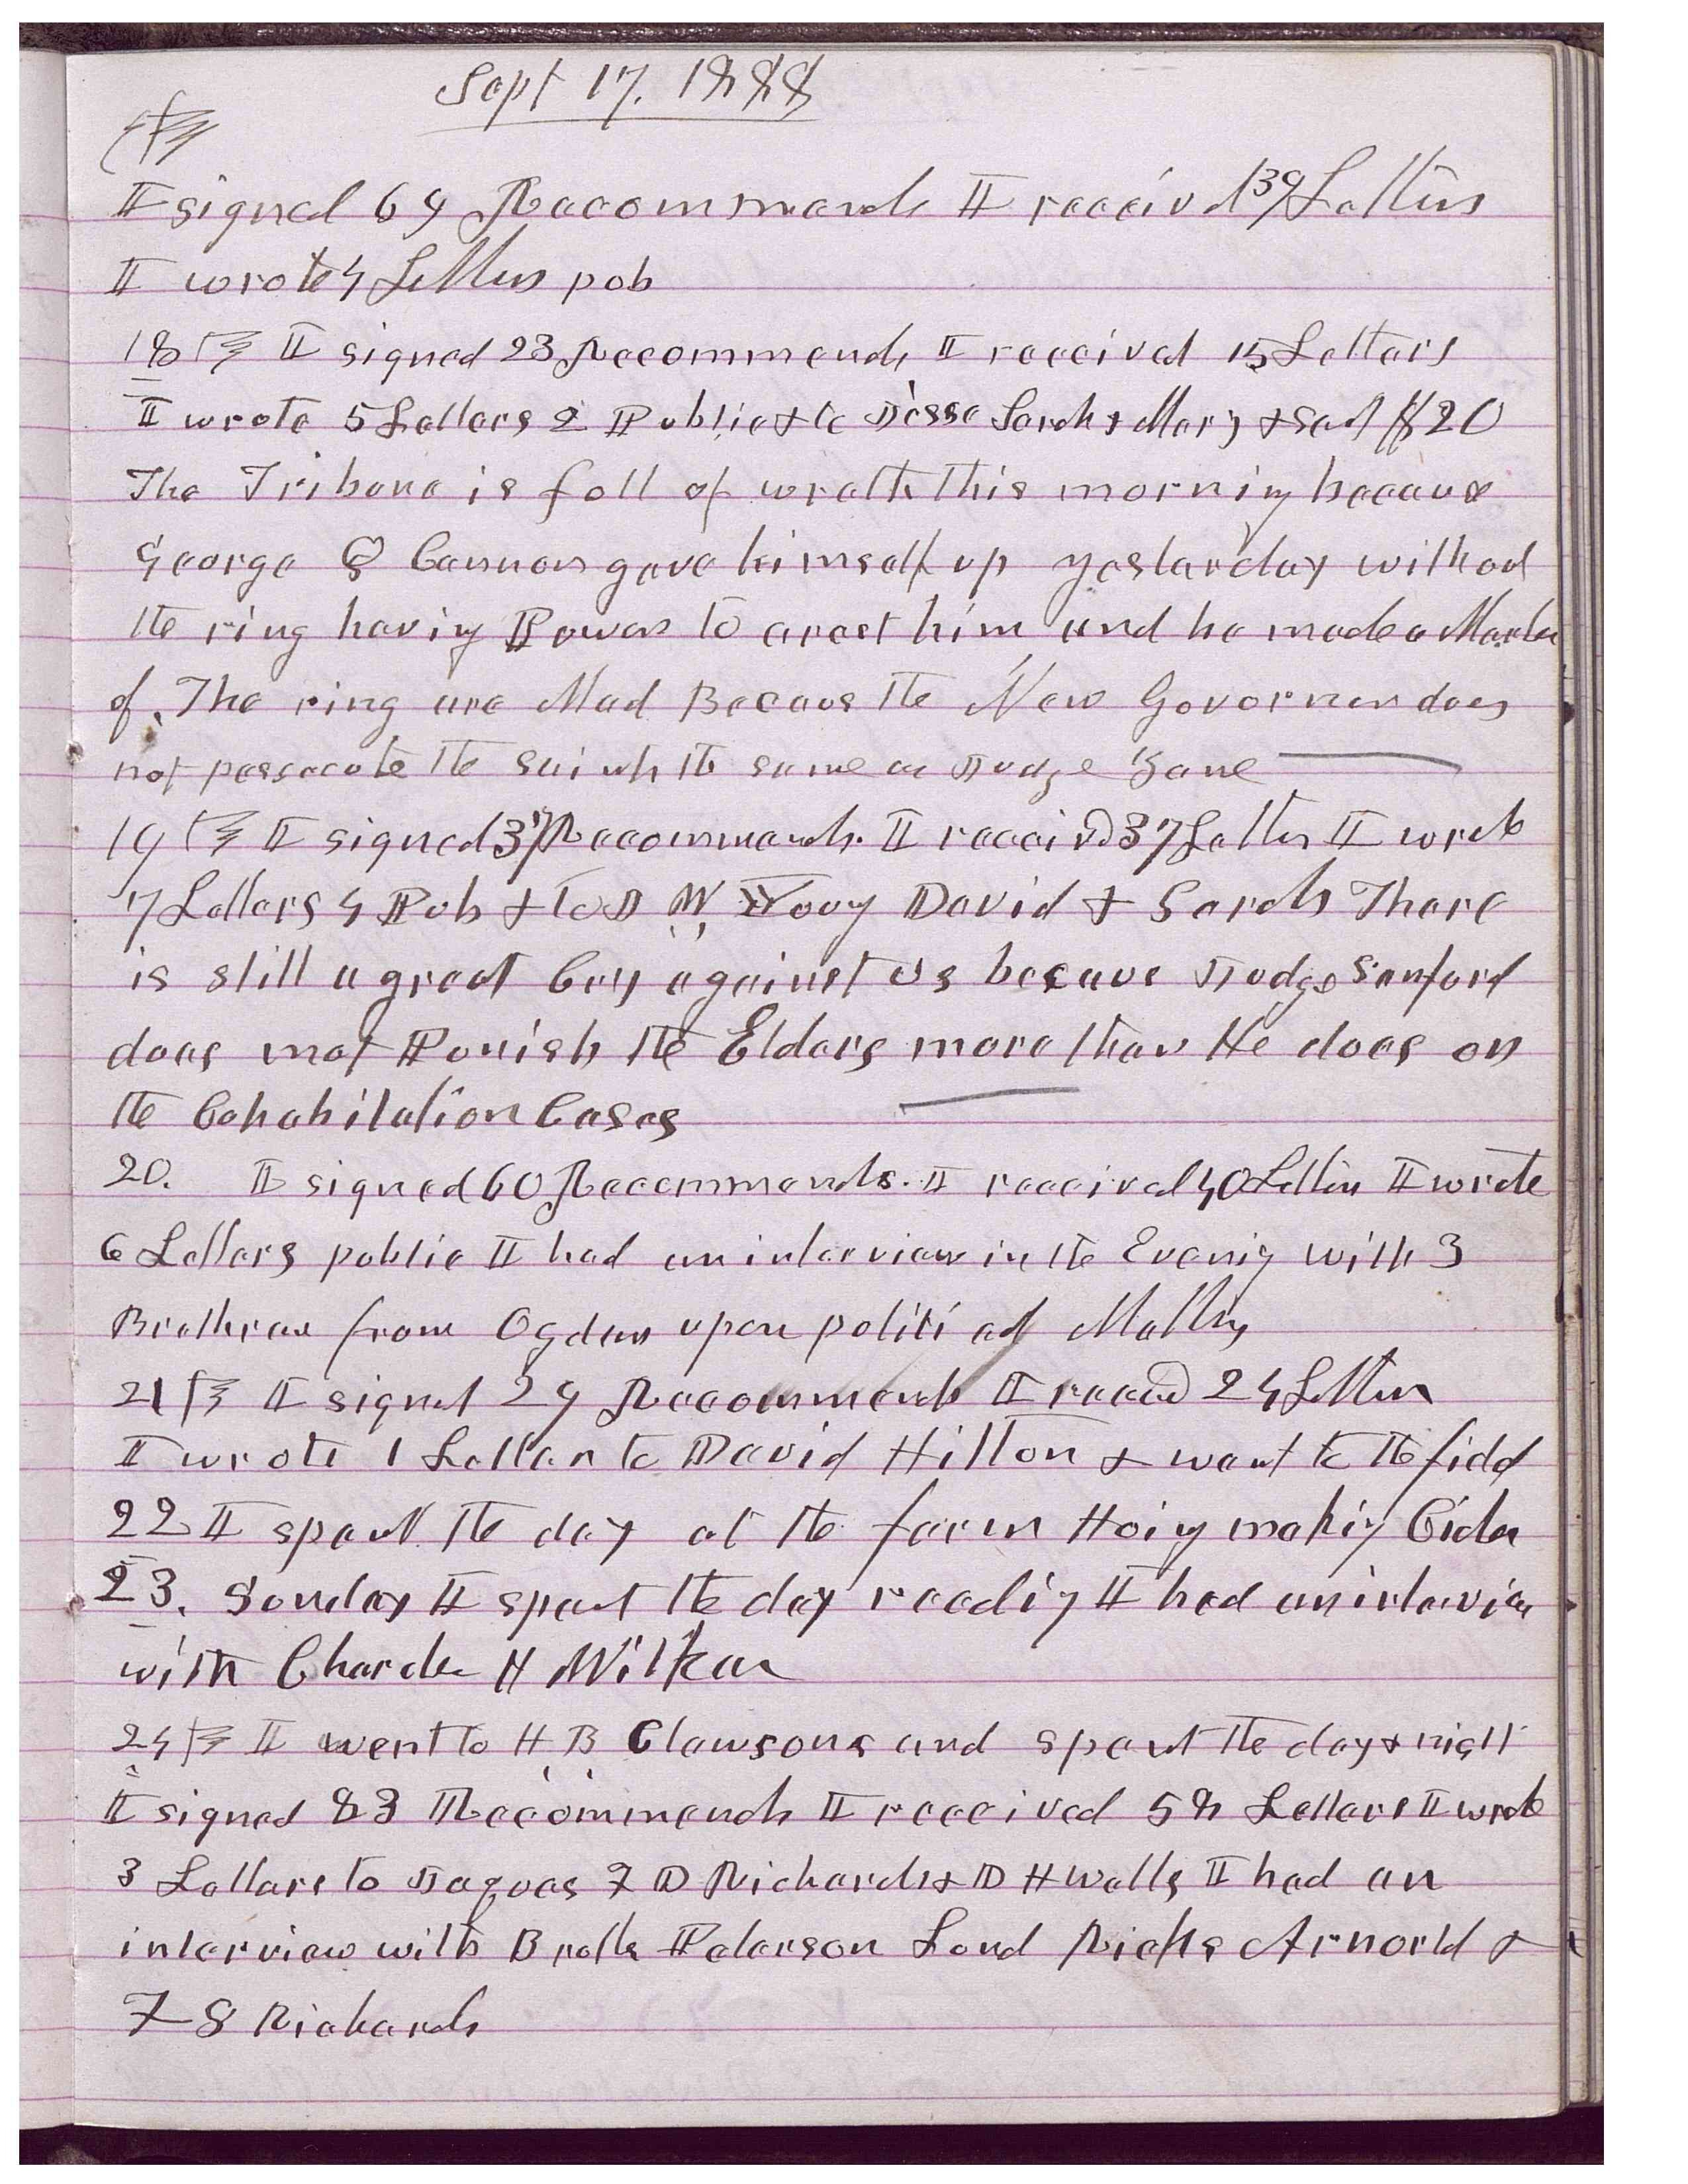 Sept 17, 1888
I signed 69 Recommends I receivd 139 Letters
I wrote 4 Letters pub
18 I signed 23 Recommends I received 15 Letters
I wrote 5 Letters 2 Public & to Jesse Sarah & Mary & sent $20
The Tribune is full of wrath this morning because
George Q Cannon gave himself up yesterday without
the ring having Power to arest him and he made a Marter
of. The ring are Mad Becaus the New Governor does
not persecute the Saints the same as Judge Zane
19 I signed 37 Recommends. I receivd 37 Letters I wrote
7 Letters 4 Pub & to J W Fovy David & Sarah There
is still a great Cry against us because Judge Sanford
does not Punish the Elders more than He does on
the Cohabitation Cases
20. I signed 60 Recommends. I received 40 Letters I wrote
6 Letters public I had an interview in the Evenig with 3
Brethren from Ogden upon political Matters
21 I signed 29 Recommends I receivd 24 Letters
I wrote 1 Letter to David Hilton & went to the field
22 I spent the day at the farm Hoig makig Cider
23. Sunday I spent the day readig I had an interview
with Charles H Wilken
24 I went to H B Clawsons and spent the day & night
I signed 83 Recommends I received 58 Letters I wrote
3 Letters to Jaques F D Richards & D H Wells I had an
interview with Broths Peterson Lund Ricks Arnold &
F S Richards